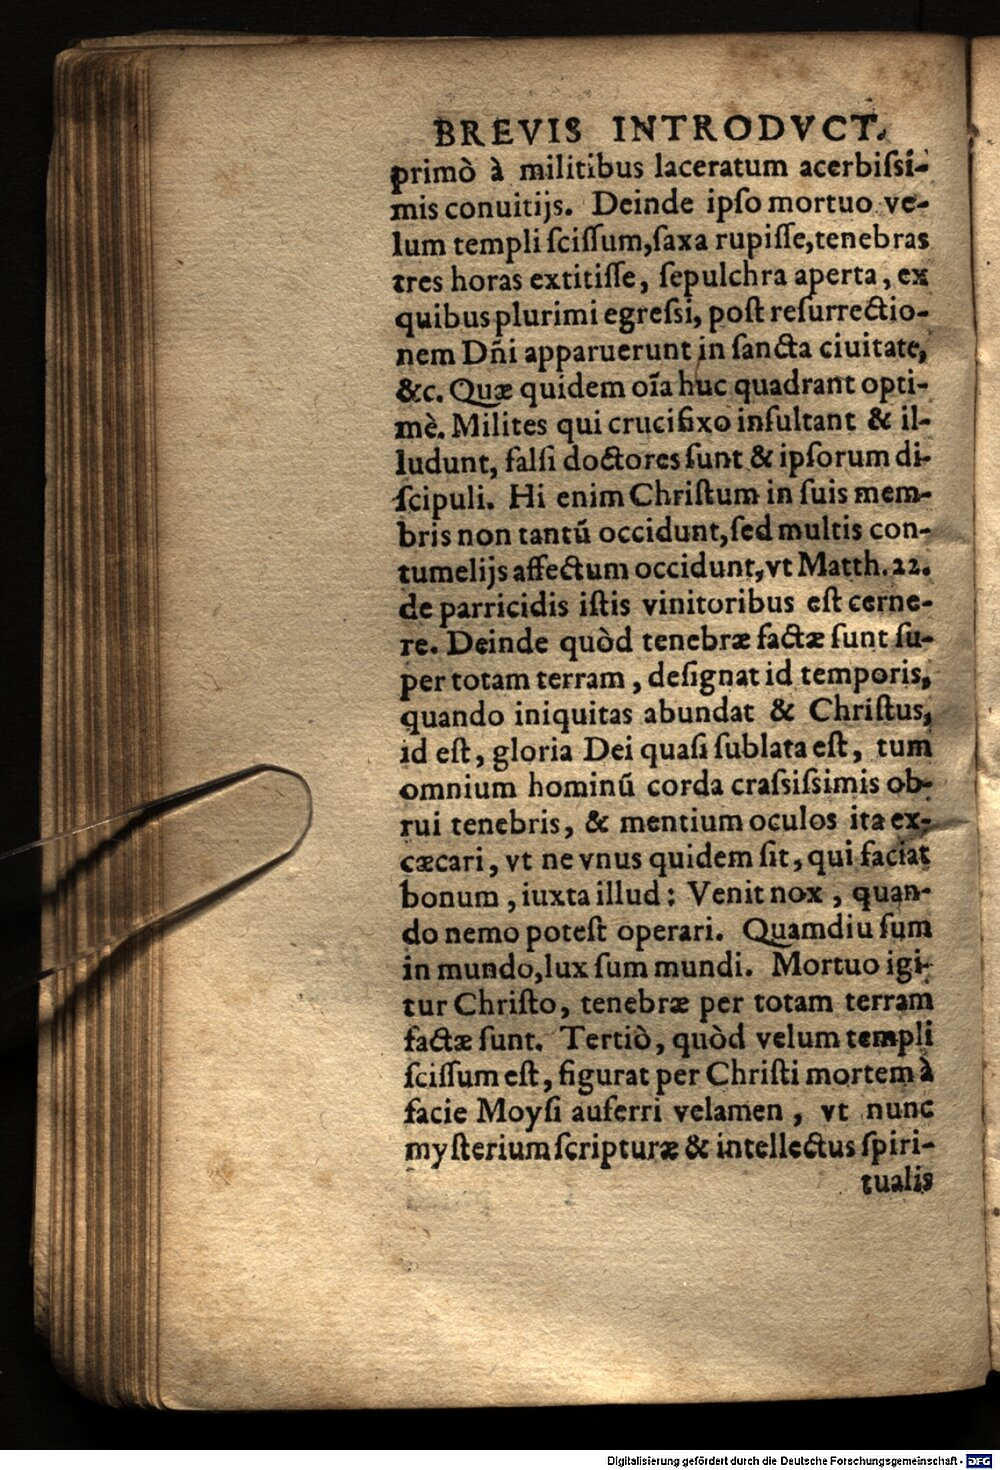 BREVIS INTRODVCT.
primò à militibus laceratum acerbiſsi-
mis conuitijs. Deinde ipſo mortuo ve-
lum templi ſciſſum,ſaxa rupiſſe,tenebras
tres horas extitiſſe, ſepulchra aperta, ex
quibus plurimi egreſsi, poſt reſurrectio-
nem Dñi apparuerunt in ſancta ciuitate,
&c. Quæ quidem oīa huc quadrant opti-
mè. Milites qui crucifixo inſultant & il-
ludunt, falſi doctores ſunt & ipſorum di-
ſcipuli. Hi enim Chriſtum in ſuis mem-
bris non tantū occidunt,ſed multis con-
tumelijs affectum occidunt,vt Matth.22.
de parricidis iſtis vinitoribus eſt cerne-
re. Deinde quòd tenebræ factæ ſunt ſu-
per totam terram, deſignat id temporis,
quando iniquitas abundat & Chriſtus,
id eſt, gloria Dei quaſi ſublata eſt, tum
omnium hominū corda craſsiſsimis ob-
rui tenebris, & mentium oculos ita ex-
cæcari, vt ne vnus quidem ſit, qui faciat
bonum, iuxta illud: Venit nox, quan-
do nemo poteſt operari. Quamdiu ſum
in mundo,lux ſum mundi. Mortuo igi-
tur Chriſto, tenebræ per totam terram
factæ ſunt. Tertiò, quòd velum templi
ſciſſum eſt, figurat per Chriſti mortem à
facie Moyſi auferri velamen, vt nunc
myſterium ſcripturæ & intellectus ſpiri-
tualis
Digitalisierung gefördert durch die Deutsche Forschungsgemeinschaft - DFG